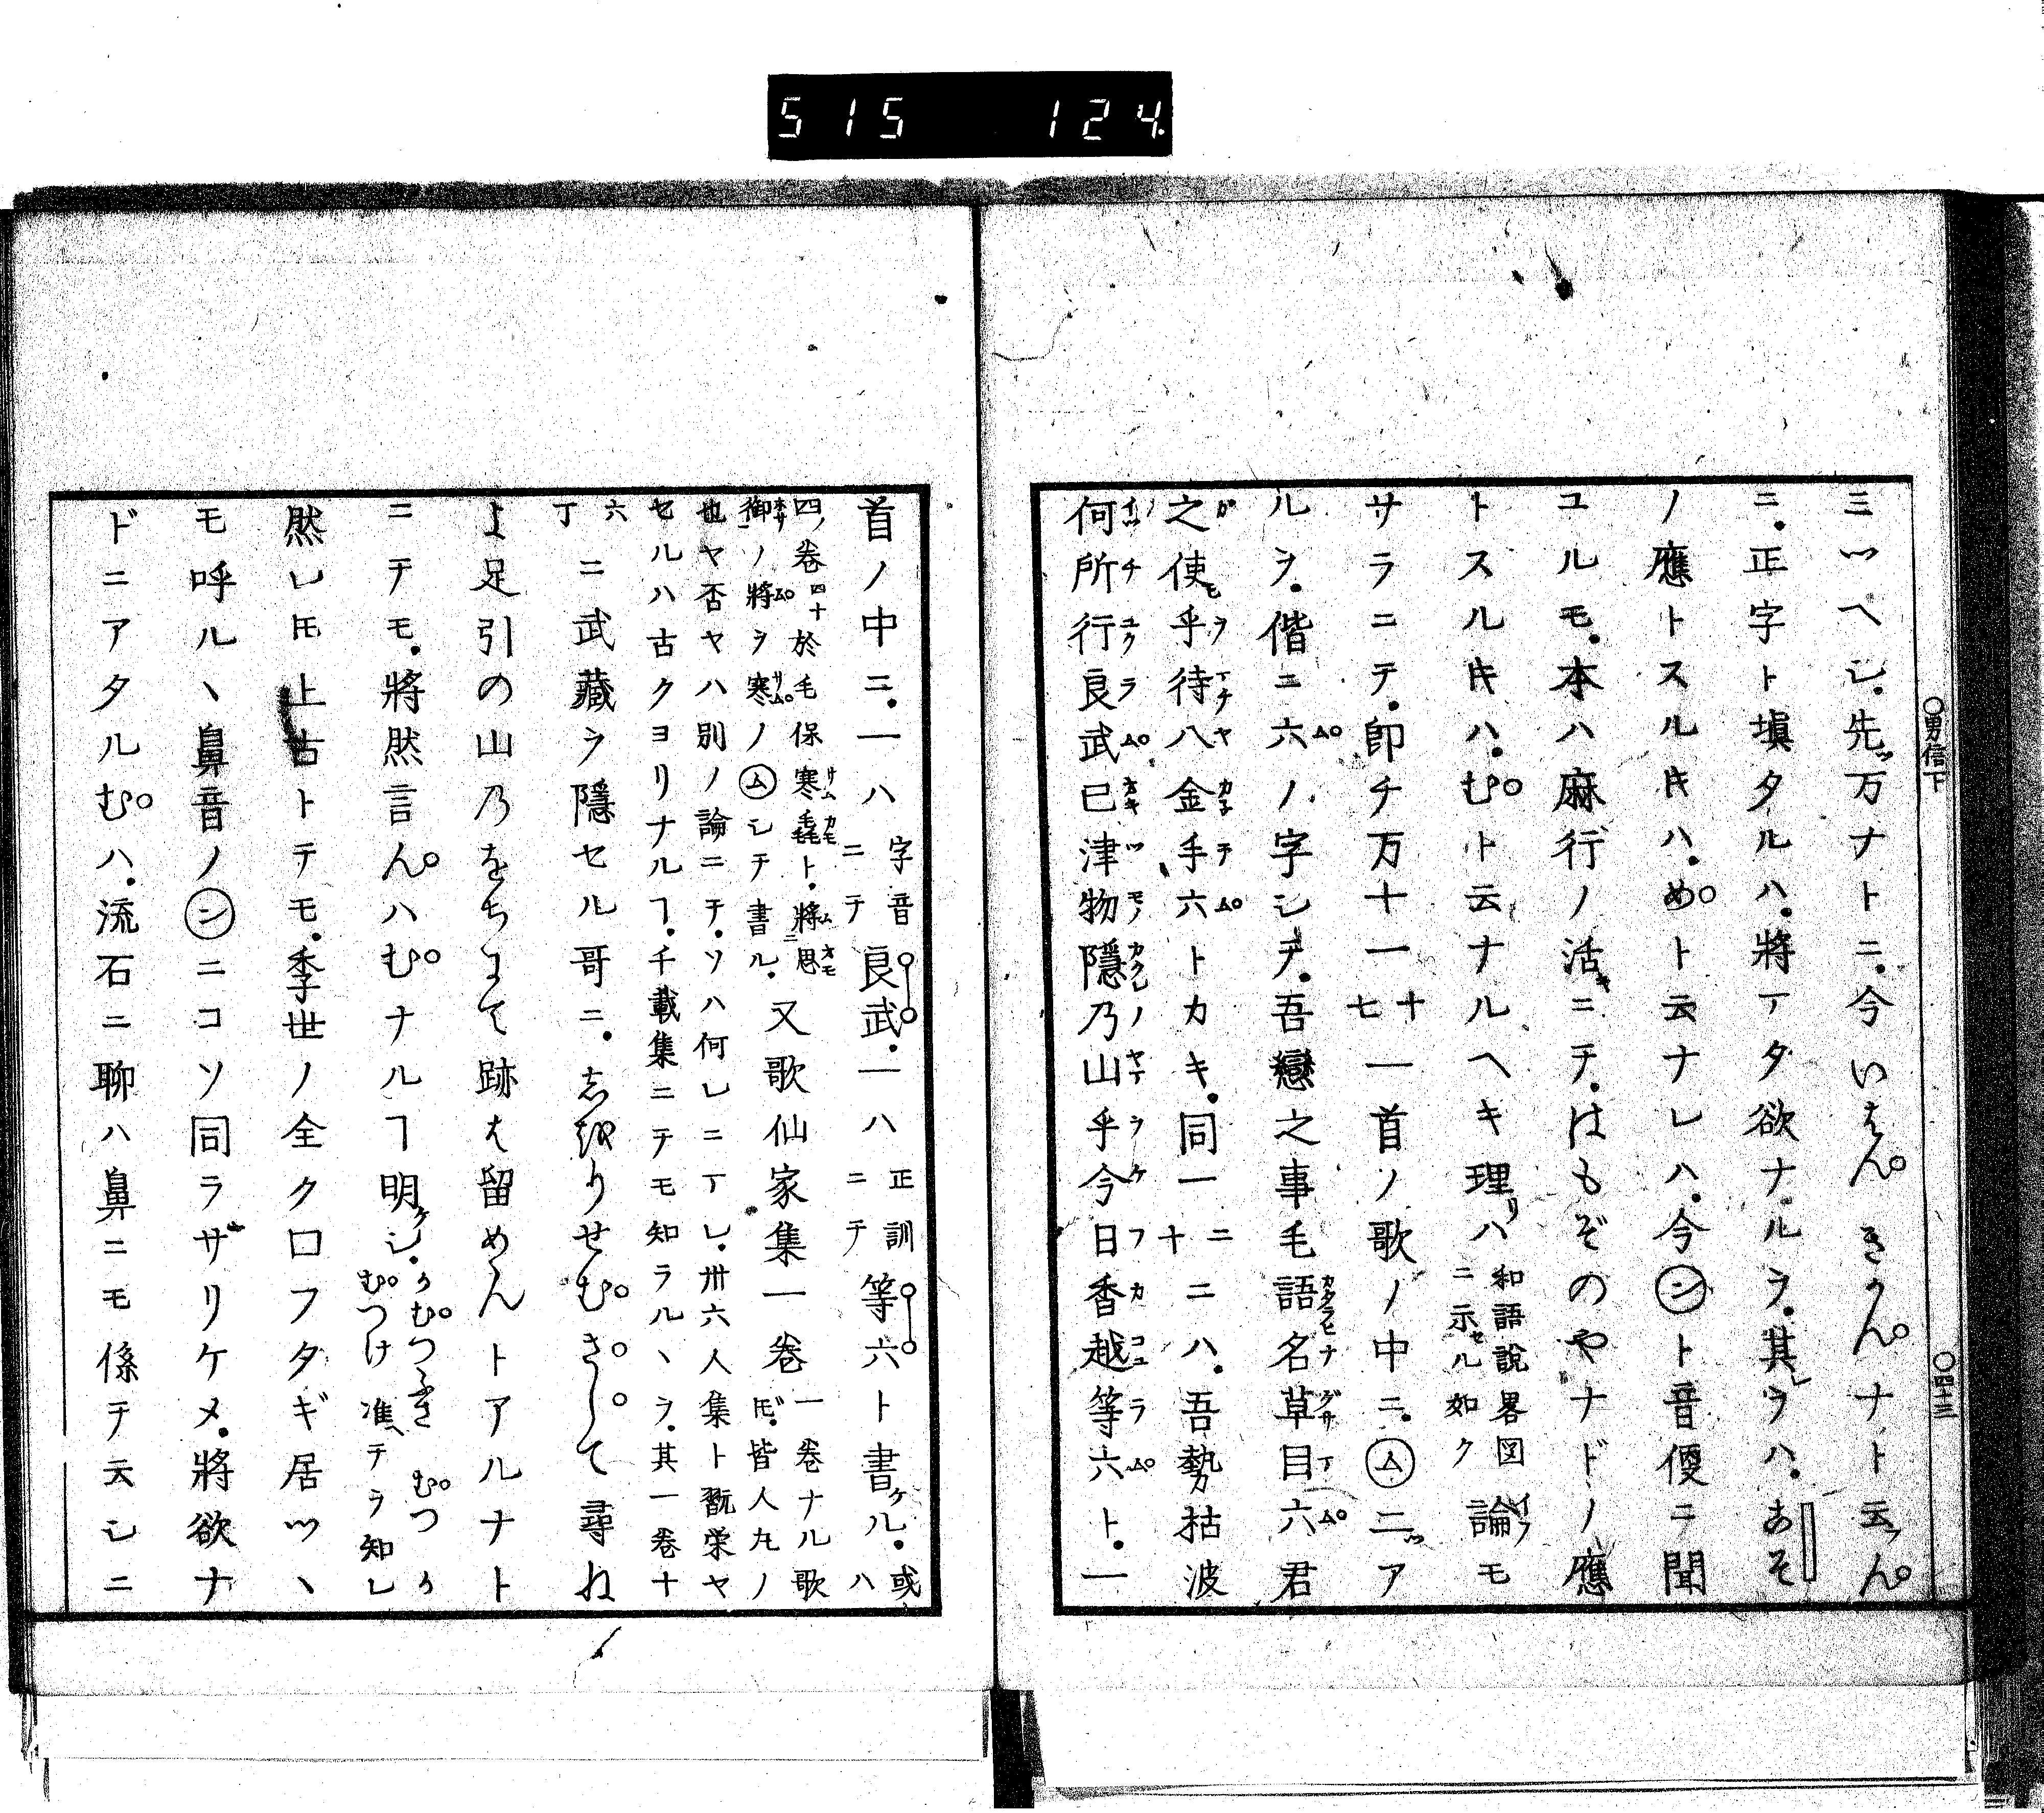 515 124
○男信下 ○四十三
三ツヘシ.先ッ万ナトニ.今いはん きかんナト云フん
ニ.正字ト塡タルハ.將マタ欲ナルヲ.其レヲハ.あそ
ノ應トスルキハ.めト云ナレハ.今ントト音便ニ聞
ユルモ.本ハ麻行ノ活キニテ.はもぞのやナドノ應
トスルキハ.むト云ナルヘキ理リハ和語說畧図ニ示セル如ク論イフモ
サラニテ.卽チ万十一十七一首ノ歌ノ中ニ.ム二ツア
ルヲ.偕ニ六ノ字シテ.吾戀之事毛語名草目六君
之使乎待八金手六トカキ.同一二十ニハ.吾勢枯波
何所行良武已津物隱乃山乎今日香越等六ト.一
首ノ中ニ.一ハ字音ニテ良武.一ハ正訓ニテ等六ト書ケル.或ハ
四ノ卷四十於毛保寒毳ト.將思
御ノ將ヲ寒ノムシテ書ル.又歌仙家集一卷一卷ナル歌ドモ.皆人丸ノ
也ヤ否ヤハ別ノ論ニテ.ソハ何レニマレ.卅六人集ト翫栄ヤ
セルハ古クヨリナルヿ.千載集ニテモ知ラルヽヲ.其一卷十
六丁ニ武藏ヲ隱セル哥ニ.志をりせむさして尋ね
よ足引の山乃をちにて跡は留めんトアルナト
ニテモ.將然言んハむナルヿ明ケシ.かむつふさ むつか むつけ准テラ知レ
然レ𪜈上古トテモ.季世ノ全クロフタギ居ツヽ
モ呼ルヽ鼻音ノンニコソ同ラザリケメ.將欲ナ
ドニアタルむハ.流石ニ聊ハ鼻ニモ係テ云シニ